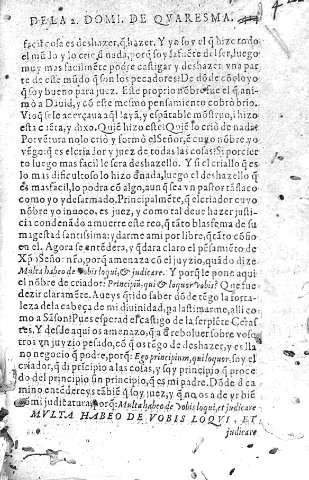 DE LA 2. DOMI. DE QVARESMA. 4
facil cosa es deshazer, q̃ hazer. Y yo soy el q̃ hize todo
el mũdo y lo criè d nada, porq̃ soy la fuẽte del ser, luego
muy mas facilmẽte podre castigar y deshazer vna par
te de este mũdo q̃ son los pecadores: De dõde cõcluyo
q̃ soy bueno para juez. Este proprio nõbre fue el q̃ ani
mò a Dauid, y cõ este mesmo pensamiento cobrò brio.
Viò q̃ se le acercaua aq̃l jayã, y espãtable mõstruo, i hizo
esta cuẽta, y dixo. Quiẽ hizo este? Quiẽ lo criò de nada?
Porvẽtura no lo criò y formò el Señor, ẽ cuyo nõbre yo
vẽgo: q̃ es el criador y juez de todas las cosas? Si por cier
to luego mas facil le sera deshazello. Y si el criallo q̃ es
lo mas dificultoso lo hizo d nada, luego el deshazello q̃
es mas facil, lo podra cõ algo, aun q̃ sea vn pastor tã flaco
como yo y desarmado. Principalmẽte, q̃ el criador cuyo
nõbre yo inuoco, es juez, y como tal deue hazer justi
cia condenãdo a muerte este reo, q̃ tãto blasfema de su
magestad sanctissima: y darme ami por libre, q̃ tãto cõfio
en el. Agora se entẽdera, y q̃dara claro el pẽsamiẽto de
Xp̃o Señor nr̃o, porq̃ amenaza cõ el juyzio, quãdo dize
Multa habeo de vobis loqui, & judicare. Y porq̃ le pone aqui
el nõbre de criador: Principiũ, qui & loquor vobis? Que fue
dezir claramẽte. Aueys q̃rido saber dõ de tẽgo la forta-
leza de la cabeça de mi diuinidad, pa lastimarme, alli co
mo a Sãson? Pues esperad el castigo de la serpiẽte Cẽraf
tes, Y desde aqui os amenazo, q̃ a d reboluer sobre voso
tros vn juyzio pesado, cõ q̃ os tẽgo de deshazer, y es lla
no negocio q̃ podre, porq̃: Ego principium, qui loquor, soy el
criador, q̃ di prĩcipio a las cosas, y soy principio q̃ proce
do del principio sin principio, q̃ es mi padre. Dõde d ca
mino entẽdereys tãbiẽ q̃ soy juez, y q̃ no os a de yr biẽ
cõ mi judicatura, porq̃: Multa habeo de vobis loqui, et judicare
MVLTA HABEO DE VOBIS LOQVI, ET
judicare